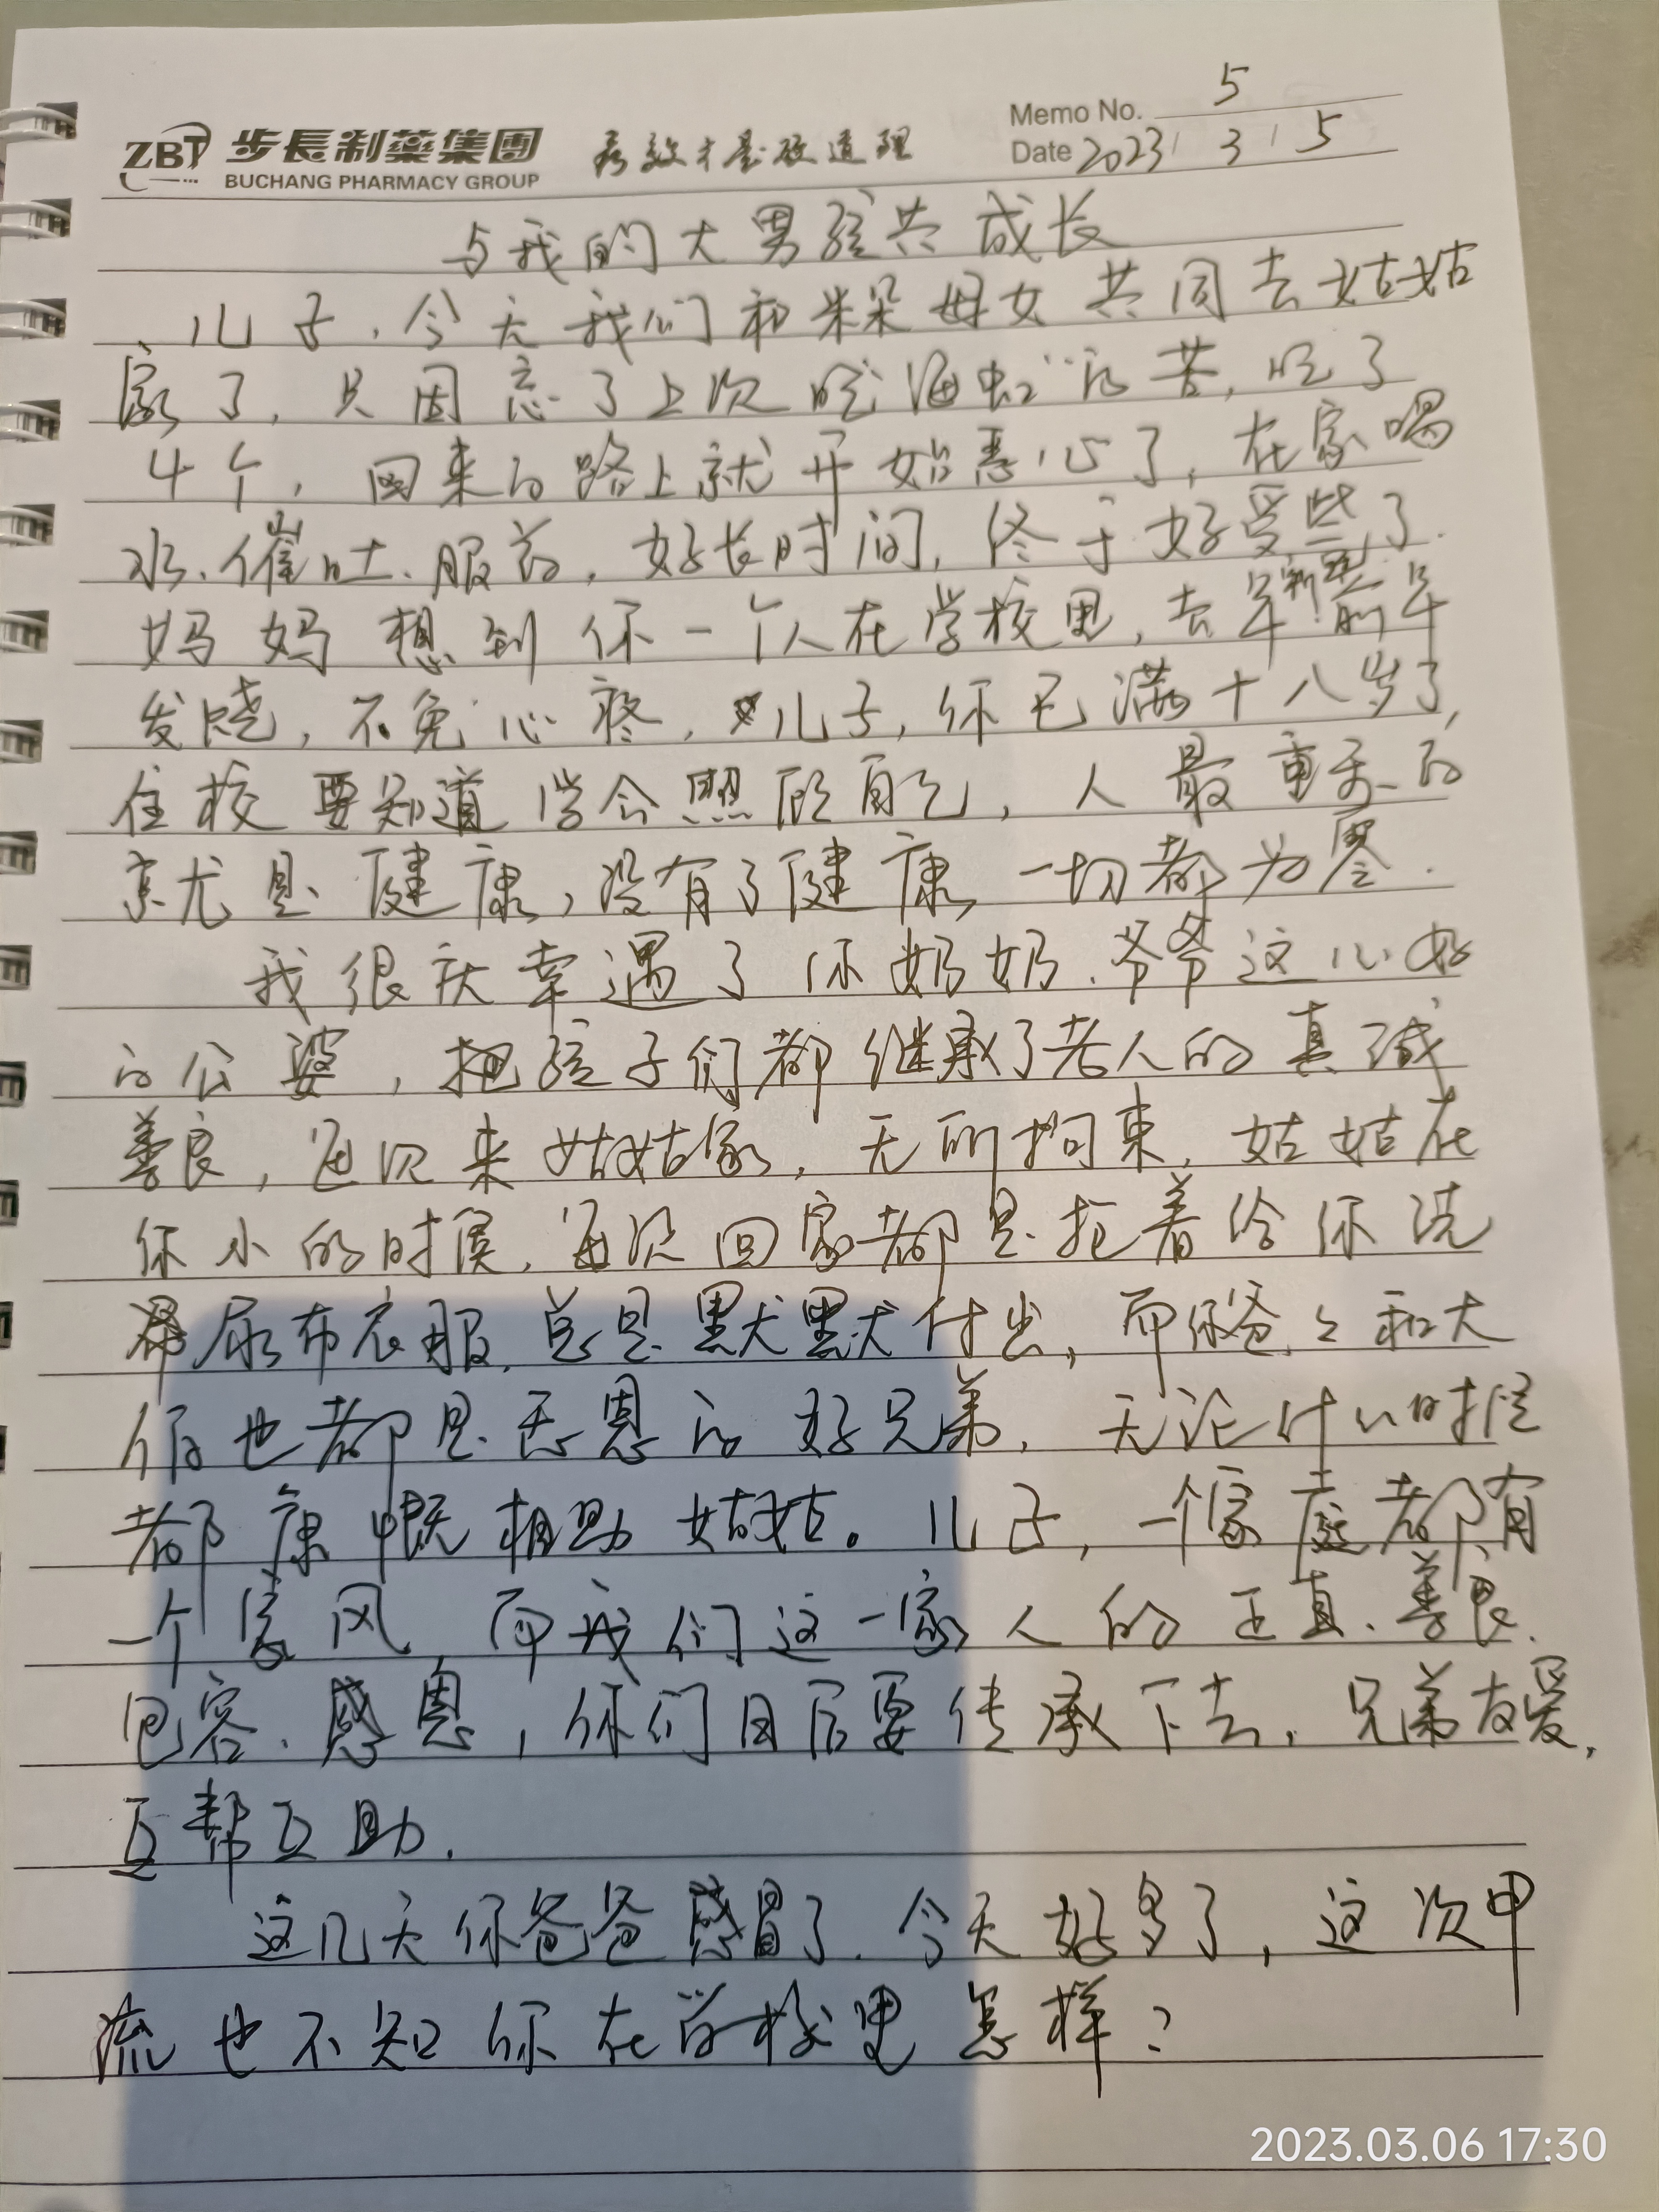 Memo No. 5
ZBT 步長制藥集團 有效才是硬道理
BUCHANG PHARMACY GROUP
Date 2023 / 3 / 5
与我的大男孩共成长
儿子,今天我们和米朵母女共同去姑姑
家了,只因忘了上次吃"海虹"的苦,吃了
4个,回来的路上就开始恶心了,在家喝
水、催吐、服药,好长时间,终于好受些了.
妈妈想到你一个人在学校里,去年 前年
发烧,不免心疼,儿子,你已满十八岁了,
住校要知道学会照顾自己,人最重要的
就是健康,没有了健康,一切都为零.
我很庆幸遇了你奶奶、爷爷这么好
的公婆,把孩子们都继承了老人的真诚
善良,每次来姑姑家,无所拘束,姑姑在
你小的时候,每次回家都是抢着给你洗
尿布衣服,总是默默付出,而你爸爸和大
伯也都是感恩的好兄弟,无论什么时候
都慷慨相助姑姑。儿子,一个家庭都有
一个家风,而我们这一家人的正直、善良、
包容、感恩,你们日后要传承下去,兄弟友爱,
互帮互助.
这几天你爸爸感冒了,今天好多了,这次甲
流也不知你在学校里怎样?
2023.03.06 17:30